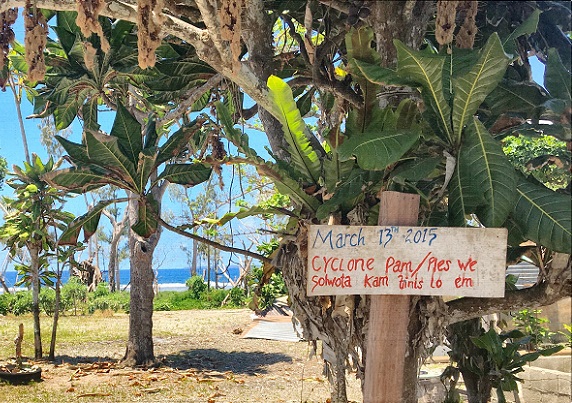 March 13th 2015
CYCLONE Pam/Ples we
Solwota Kam lo em